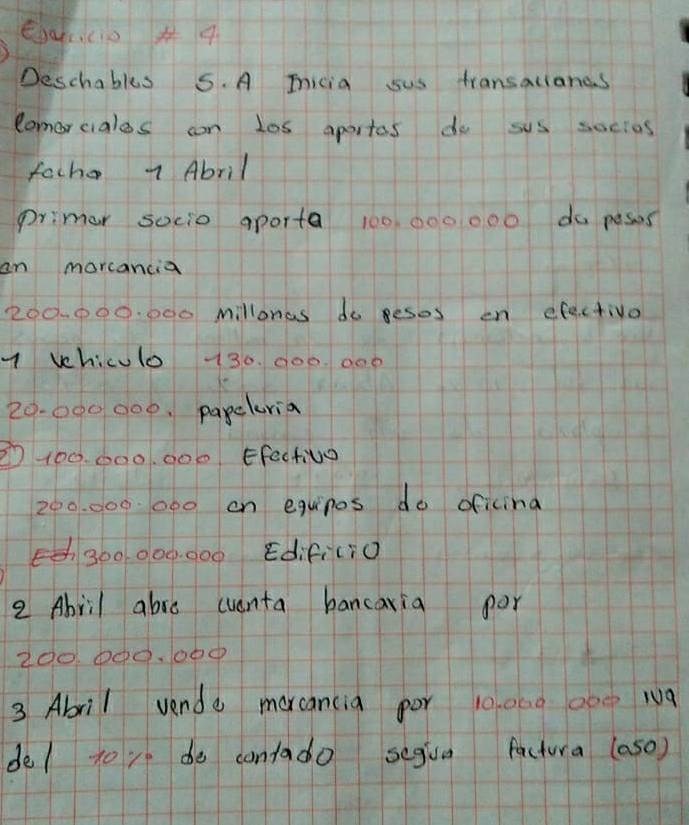 Ejercicio # 4
Deschables S.A Inicia sus transacianes
Comerciales con los aportes de sus socios
fecha 1 Abril
primer socio aporta 100.000.000 de pesos
en marcancia
200.000.000 Millones de pesos en efectivo
1 vehiculo 130.000.000
20.000 000. papeleria
2) 100.000.000 Efectivo
200.000.000 en equipos de oficina
300.000.000 Edificio
2 Abril abre cuenta bancaria por
200.000.000
3 Abril vende mercancia por 10.000.000 IVA
del 10% de contado segun factura (050)